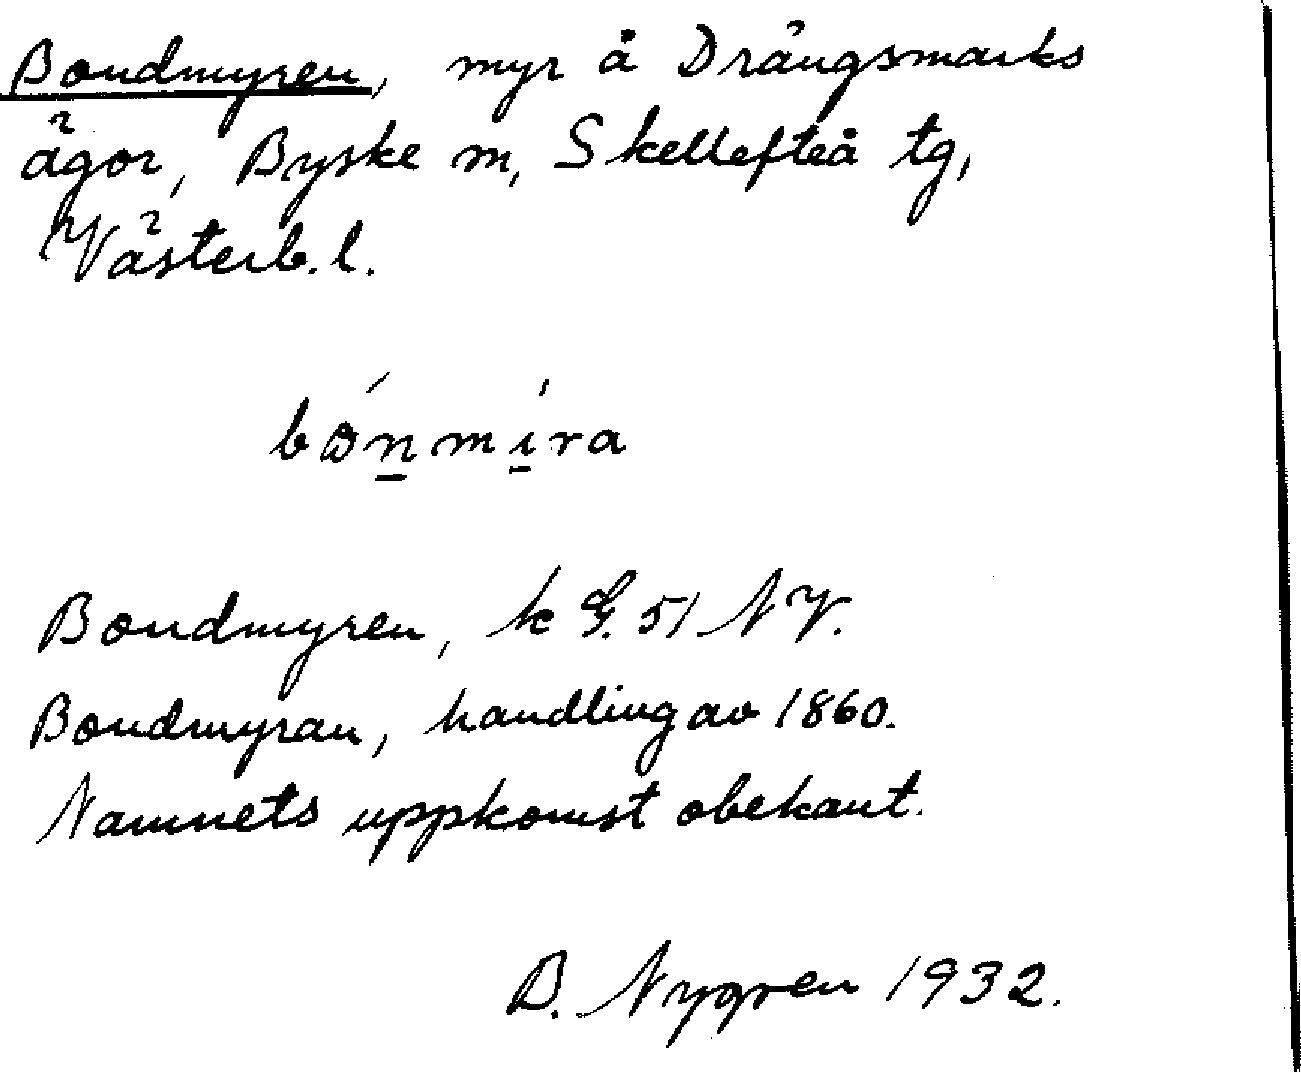 Bondmyren, myr å Drängsmarks
ägor, Byske m, Skellefteå tg,
Västerb. l.
Bondmyren, k G. 51 NV.
Bondmyran, handling av 1860.
Namnets uppkomst obekant.
B. Nygren 1932.